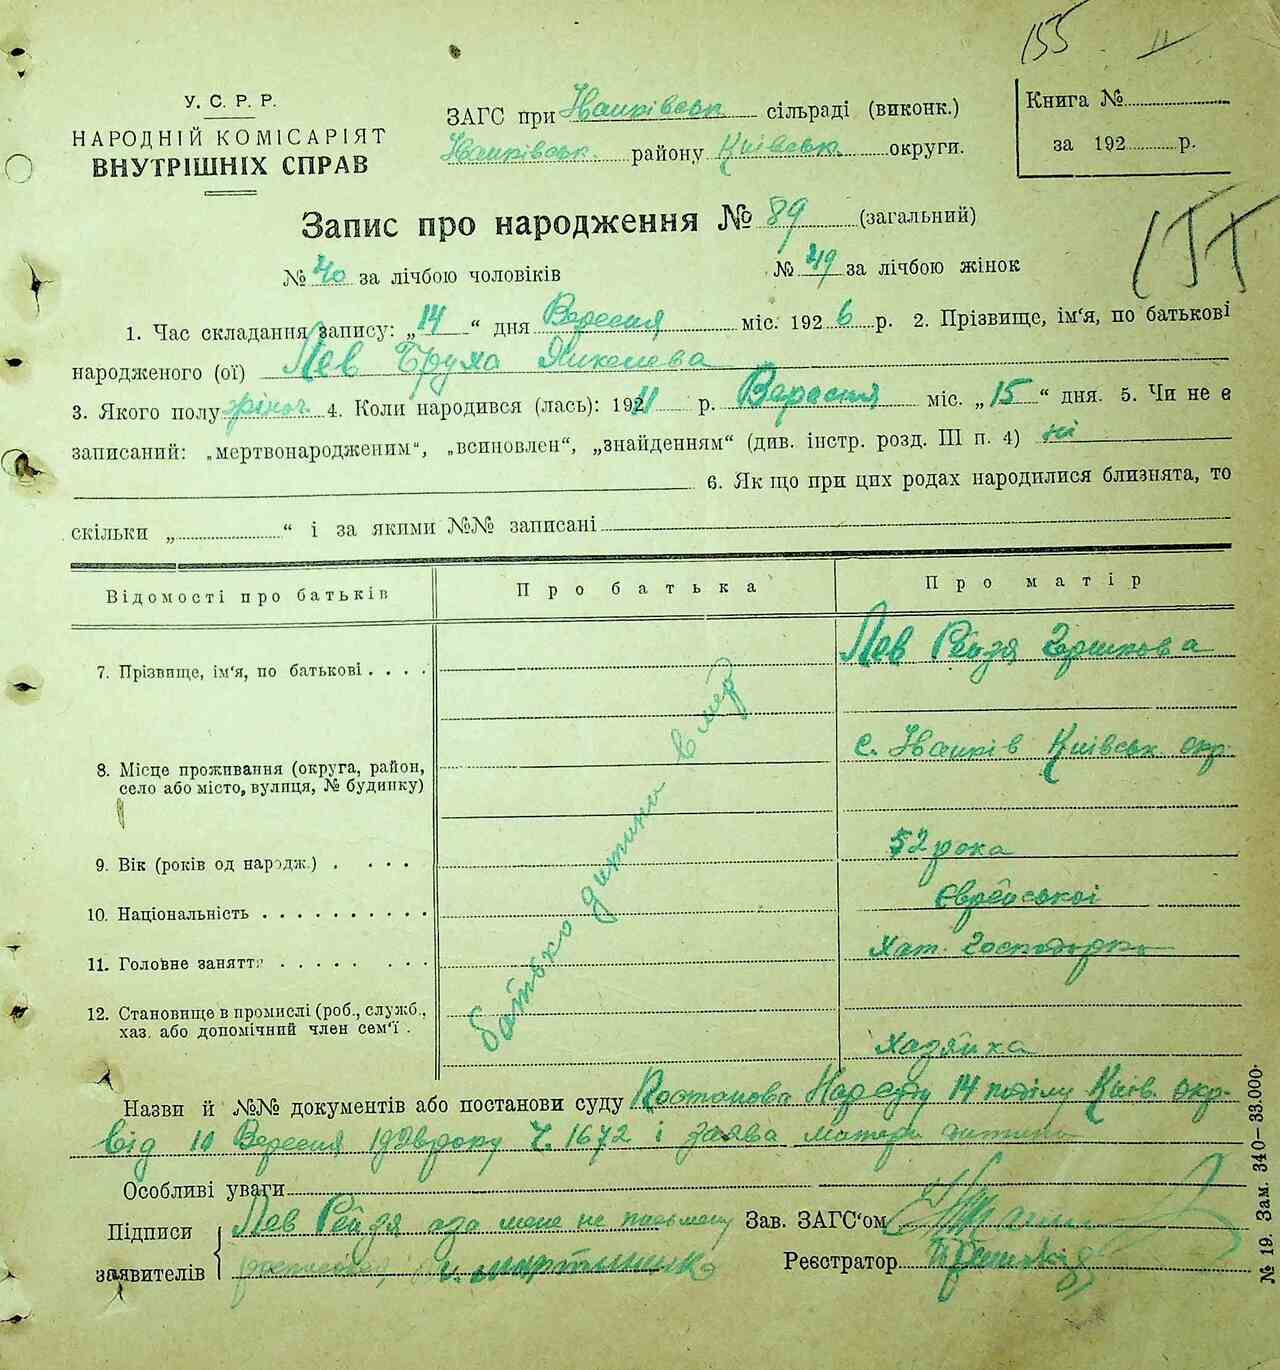 155 II
У. С. Р. Р.
НАРОДНІЙ КОМІСАРІЯТ
ВНУТРІШНІХ СПРАВ
ЗАГС при Іванківськ сільраді (виконк.)
Іванківськ. району Київськ. округи.
Книга №
за 192 р.
Запис про народження № 89 (загальний)
155
№ 40 за лічбою чоловіків № 49 за лічбою жінок
1. Час складання запису: „14“ дня Вересня міс. 1926 р. 2. Прізвище, ім'я, по батькові
народженого (ої) Лев Бруха
3. Якого полу жіноч. 4. Коли народився (лась): 1911 р. Вересня міс. „15“ дня. 5. Чи не є
записаний: „мертвонародженим“, „всиновлен“, „знайденням“ (див. інстр. розд. III п. 4) ні
6. Якщо при цих родах народилися близнята, то
скільки „ “ і за якими №№ записані
Відомості про батьків Про батька Про матір
7. Прізвище, ім'я, по батькові . . . . Лев Рейдя Гершкова
8. Місце проживання (округа, район, село або місто, вулиця, № будинку) с. Іванків Київськ. окр.
9. Вік (років од народж.) . . . . 52 рока
10. Національність . . . . . . . . . . Єврейської
11. Головне заняття . . . . . . . Хат. господарка
12. Становище в промислі (роб., служб., хаз. або допомічний член сем'ї . Хазяйка
батько дитини вмер
Назви й №№ документів або постанови суду Постанова Нарсуду 14 поділу Київ. окр.
від 10 Вересня 1926 року Ч. 1672 і заява матери дитини
Особливі уваги
Підписи Лев Рейдя а за мене не письмену Зав. ЗАГС'ом
заявителів Реєстратор
№ 19. Зам. 340—33.000.